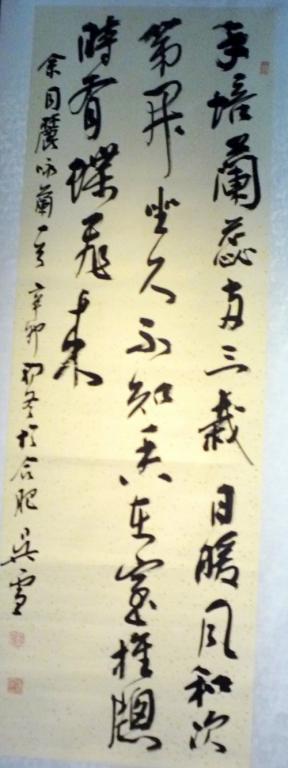 手培蘭蕊两三栽日暖風和次
第開坐久不知香在室推窗
時有蝶飛來
余同麓咏蘭一首辛卯初冬於合肥吳雪